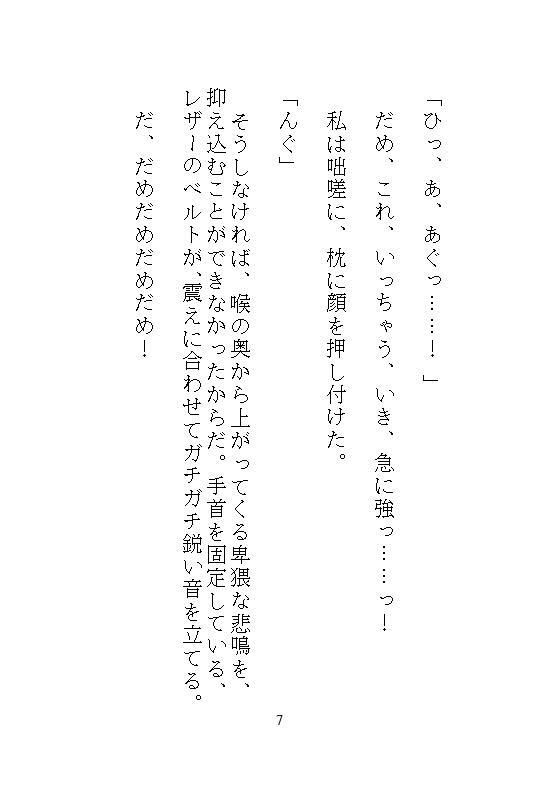 「ひっ、あ、あぐっ……！」
だめ、これ、いっちゃう、いき、急に強っ……っ！
私は咄嗟に、枕に顔を押し付けた。
「んぐ」
そうしなければ、喉の奥から上がってくる卑猥な悲鳴を、
抑え込むことができなかったからだ。手首を固定している、
レザーのベルトが、震えに合わせてガチガチ鋭い音を立てる。
だ、だめだめだめだめ！
7